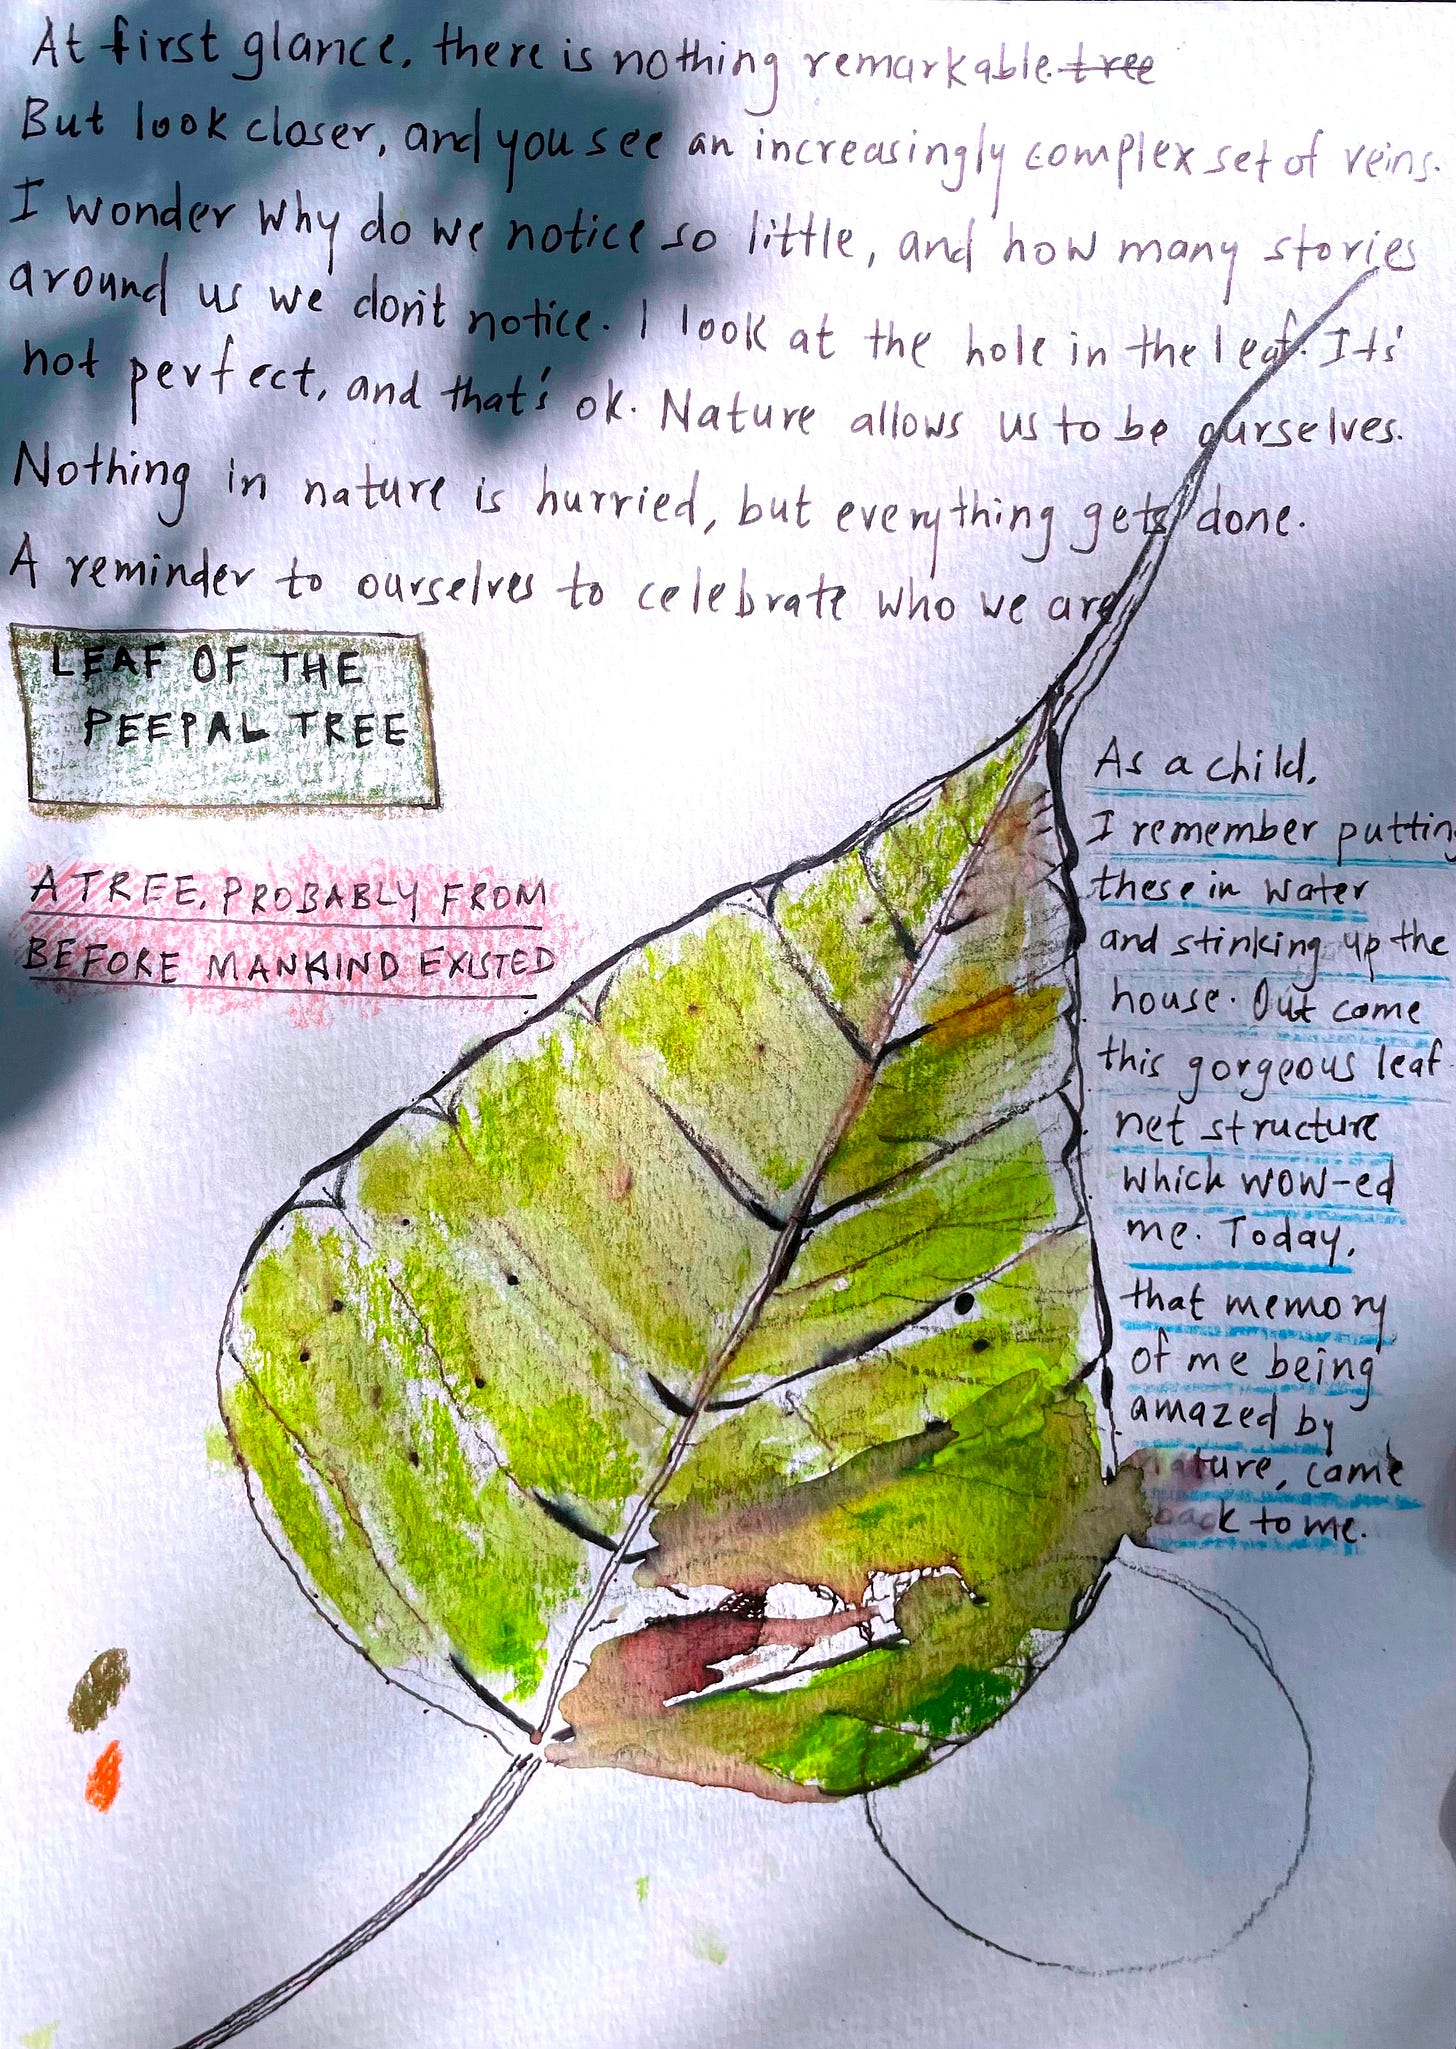 At first glance, there is nothing remarkable. tree
But look closer, and you see an increasingly complex set of veins.
I wonder why do we notice so little, and how many stories
around us we don't notice. I look at the hole in the leaf. Its'
not perfect, and that's ok. Nature allows us to be ourselves.
Nothing in nature is hurried, but everything gets done.
A reminder to ourselves to celebrate who we are
LEAF OF THE
PEEPAL TREE
A TREE, PROBABLY FROM
BEFORE MANKIND EXISTED
As a child,
I remember putting
these in water
and stinking up the
house. Out came
this gorgeous leaf
net structure
which WOW-ed
me. Today,
that memory
of me being
amazed by
nature, came
back to me.